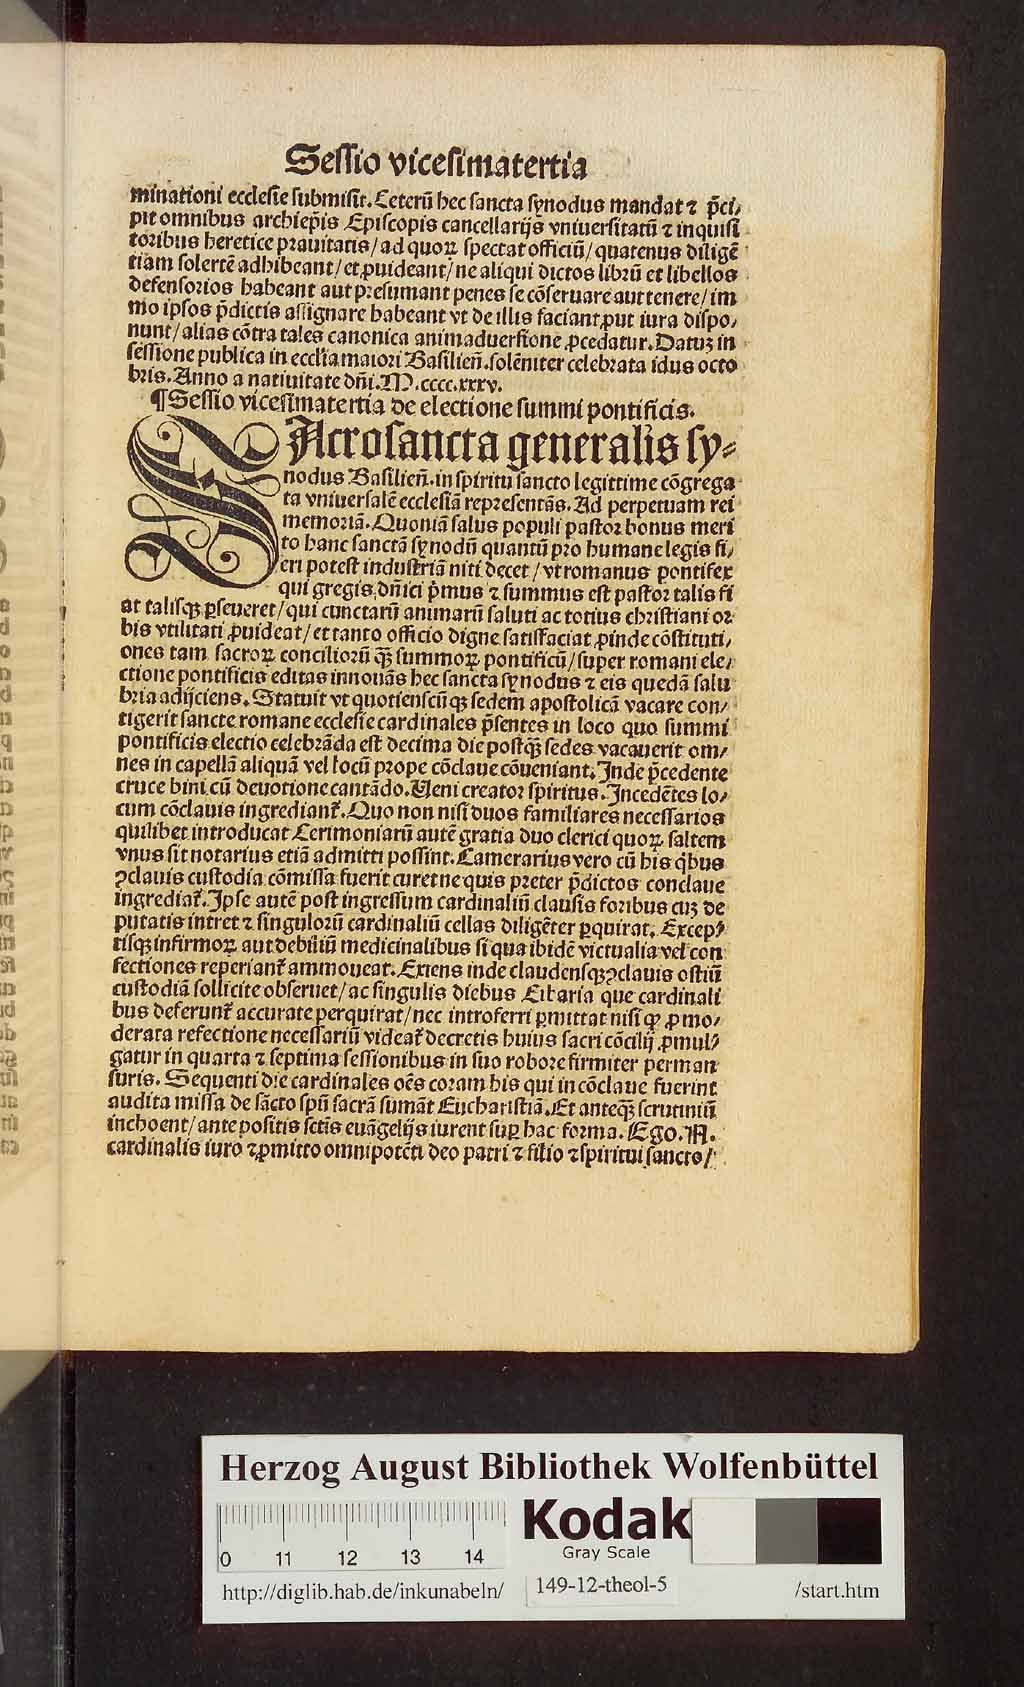 Sessio vicesimatertia
minationi ecclesie submisit. Ceterū hec sancta synodus mandat ⁊ p̄ci⸗
pit omnibus archiep̄is Episcopis cancellarijs vniuersitatū ⁊ inquisi
toribus heretice prauitatis / ad quoꝝ spectat officiū / quatenus diligē
tiam solertē adhibeant / et ꝓuideant / ne aliqui dictos librū et libellos
defensorios habeant aut presumant penes se cōseruare aut tenere / im
mo ipsos p̄dictis assignare habeant vt de illis faciant ꝓut iura dispo⸗
nunt / alias cōtra tales canonica animaduersione ꝓcedatur. Datuꝫ in
sessione publica in eccl'ia maiori Basilien̄. solēniter celebrata idus octo
bris. Anno a natiuitate dn̄i. M. cccc. xxxv.
¶ Sessio vicesimatertia de electione summi pontificis.
SAcrosancta generalis sy⸗
nodus Basilien̄. in spiritu sancto legittime cōgrega
ta vniuersalē ecclesiā representās. Ad perpetuam rei
memoriā. Quoniā salus populi pastor bonus meri
to hanc sanctā synodū quantū pro humane legis fi⸗
eri potest industriā niti decet / vt romanus pontifex
qui gregis dn̄ici p̄mus ⁊ summus est pastor talis fi
at talisqꝫ ꝑseueret / qui cunctarū animarū saluti ac totius christiani or
bis vtilitati ꝓuideat / et tanto officio digne satisfaciat ꝓinde cōstituti⸗
ones tam sacroꝝ conciliorū qꝫ̄ summoꝝ pontificū / super romani ele⸗
ctione pontificis editas innouās hec sancta synodus ⁊ eis quedā salu
bria adijciens. Statuit vt quotienscūqꝫ sedem apostolicā vacare con⸗
tigerit sancte romane ecclesie cardinales p̄sentes in loco quo summi
pontificis electio celebrāda est decima die postqꝫ̄ sedes vacauerit om⸗
nes in capellā aliquā vel locū prope cōclaue cōueniant. Inde p̄cedente
cruce bini cū deuotione cantādo. Veni creator spiritus. Incedētes lo⸗
cum cōclauis ingrediant᷑. Quo non nisi duos familiares necessarios
quilibet introducat Cerimoniarū autē gratia duo clerici quoꝝ saltem
vnus sit notarius etiā admitti possint. Camerarius vero cū his q̇bus
ꝯclauis custodia cōmissa fuerit curet ne quis preter p̄dictos conclaue
ingrediat᷑. Ipse autē post ingressum cardinaliū clausis foribus cuꝫ de
putatis intret ⁊ singulorū cardinaliū cellas diligēter ꝑquirat. Excep⸗
tisqꝫ infirmoꝝ aut debiliū medicinalibus si qua ibidē victualia vel con
fectiones reperiant᷑ ammoueat. Exiens inde claudensqꝫ ꝯclauis ostiū
custodiā sollicite obseruet / ac singulis diebus Cibaria que cardinali
bus deferunt᷑ accurate perquirat / nec introferri ꝑmittat nisi qꝫ ꝓ mo⸗
derata refectione necessariū videat᷑ decretis huius sacri cōcilij ꝓmul⸗
gatur in quarta ⁊ septima sessionibus in suo robore firmiter perman
suris. Sequenti die cardinales oēs coram his qui in cōclaue fuerint
audita missa de sācto spū sacrā sumāt Eucharistiā. Et anteqꝫ̄ scrutiniū
inchoent / ante positis sctīs euāgelijs iurent suꝑ hac forma. Ego. N.
cardinalis iuro ⁊ ꝓmitto omnipotēti deo patri ⁊ filio ⁊ spiritui sancto /
Herzog August Bibliothek Wolfenbüttel
0 11 12 13 14
Kodak
Gray Scale
http://diglib.hab.de/inkunabeln/ 149-12-theol-5 /start.htm